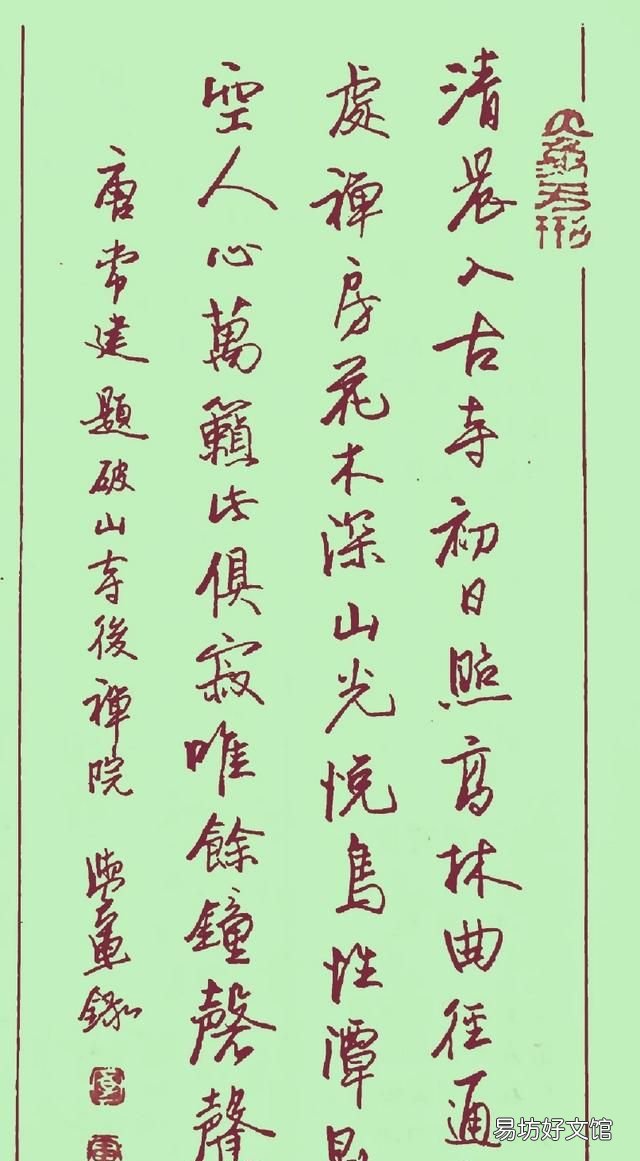 大象无形
清晨入古寺初日照高林曲徑通
處禪房花木深山光悅鳥性潭
空人心萬籟此俱寂唯餘鐘磬聲
唐常建題破山寺後禪院 錄
易坊好文馆